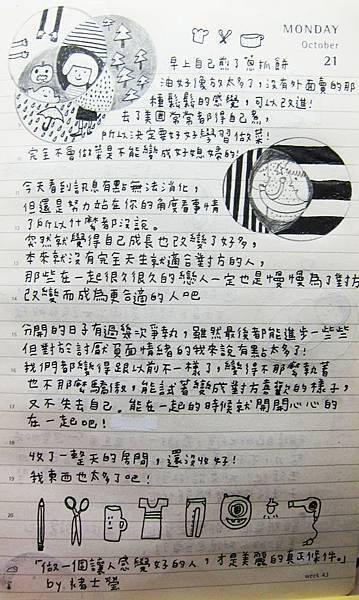 MONDAY
October
21
早上自己煎了蔥抓餅
油好像放太多了,沒有外面賣的那
種鬆鬆的感覺,可以改進!
去了美國常常都得自己煮,
所以決定要好好學習做菜!
完全不會做菜是不能變成好媳婦的!
今天看到訊息有點無法消化,
但還是努力站在你的角度看事情
了所以什麼都沒說。
突然就覺得自己成長也改變了好多,
本來就沒有完全天生就適合對方的人,
那些在一起很久很久的戀人一定也是慢慢為了對方
改變而成為更合適的人吧
分開的日子有過幾次爭執,雖然最後都能進步一些些
但對於討厭負面情緒的我來說有點太多了!
我們都變得跟以前不一樣了,變得不那麼執著
也不那麼驕傲,能試著變成對方喜歡的樣子,
又不失去自己。能在一起的時候就開開心心的
在一起吧!
收了一整天的房間,還沒收好!
我東西也太多了吧!
「做一個讓人感覺好的人,才是美麗的真正條件。」
by 褚士瑩
week 43